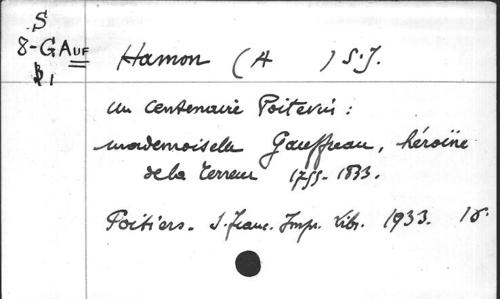 S
8-GAUF
B1
Hamon (A ) S.J.
un centenaire Poitevin :
mademoiselle Gauffreau, héroïne
de la Terreur 1755-1833.
Poitiers. S. franc. Impr. Libr. 1933.